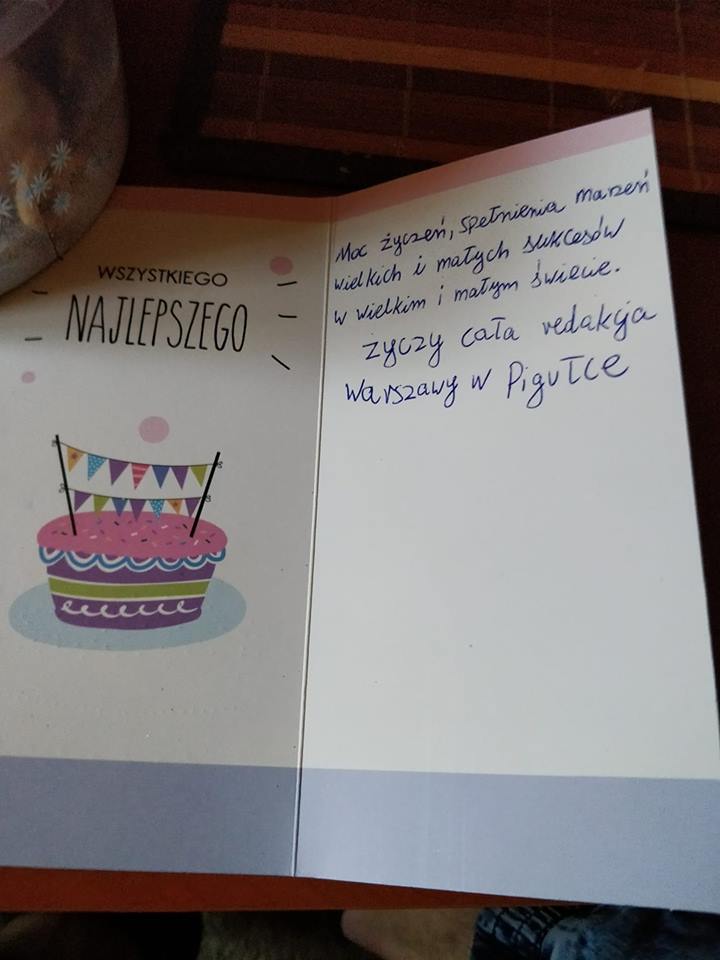 WSZYSTKIEGO
NAJLEPSZEGO
Moc życzeń, spełnienia marzeń
wielkich i małych sukcesów
w wielkim i małym świecie.
życzy cała redakcja
Warszawy w Pigułce